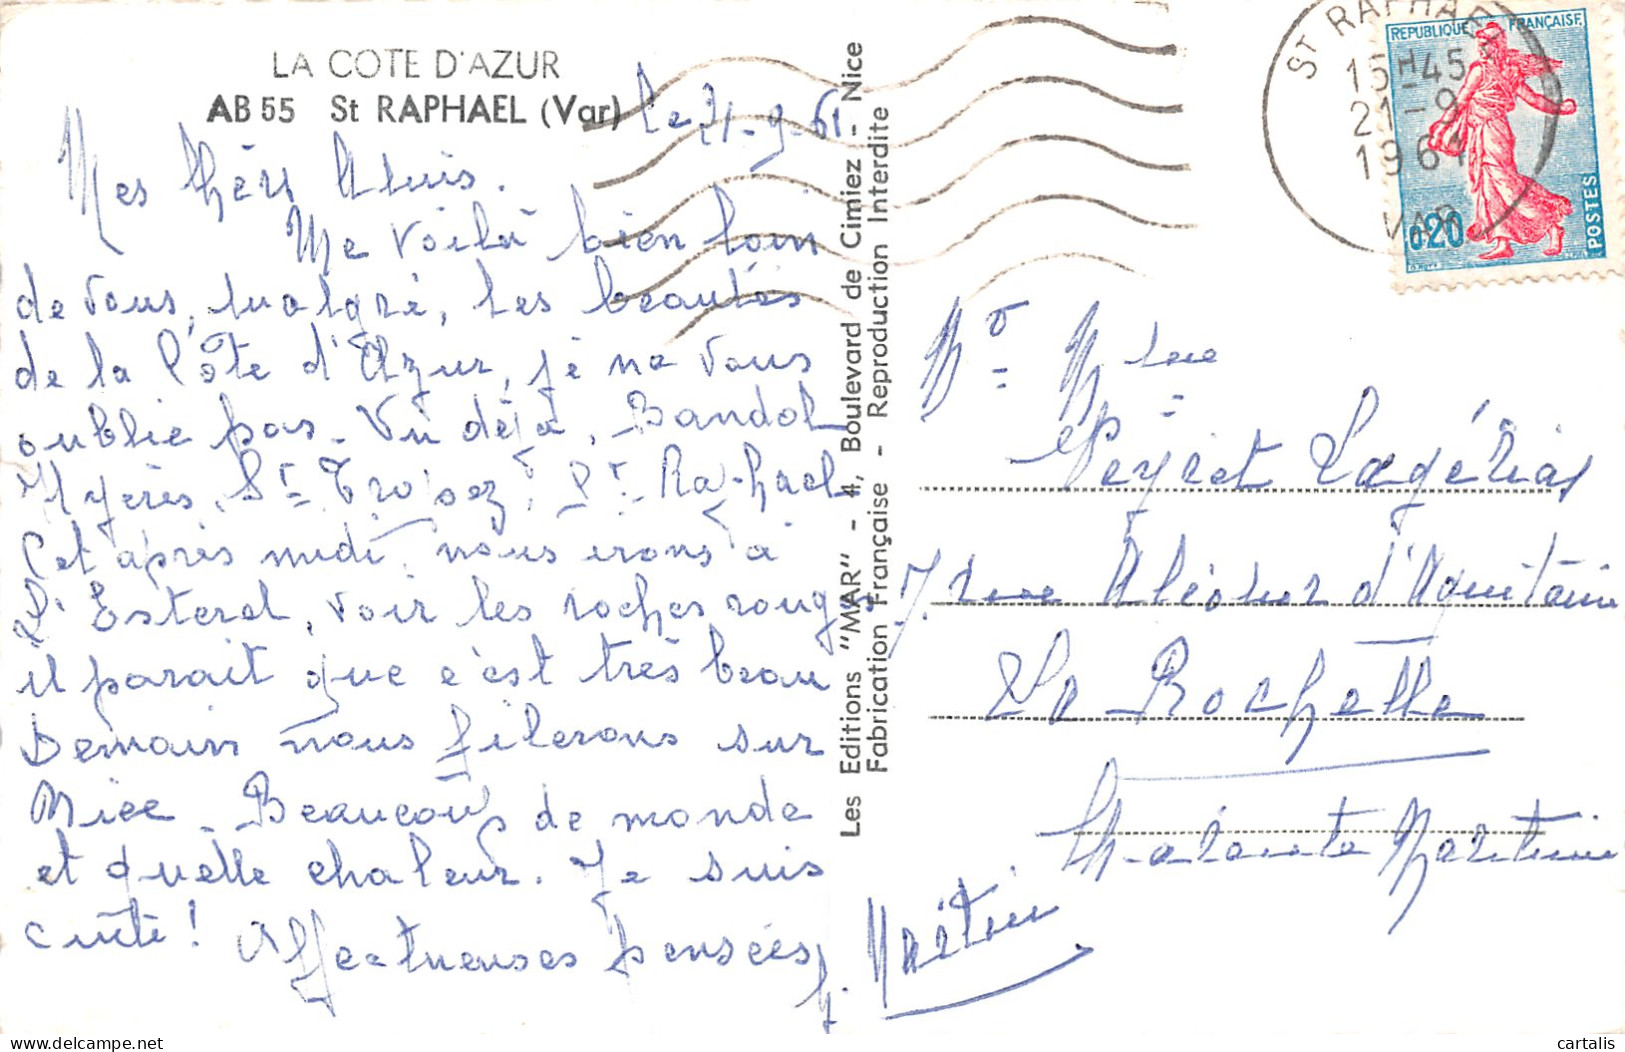 LA COTE D'AZUR
AB 55 St RAPHAEL (Var)
Le 21-9-61
Mes chers Amis.
Me voilà bien loin
de vous, malgré, les beautés
de la Côte d'Azur, je ne vous
oublie pas. Vu déjà, Bandol
Hyères, St Tropez, St Raphael
Cet après midi, nous irons à
L'Esterel, voir les roches rouges
il parait que c'est très beau
Demain nous filerons sur
Nice. Beaucoup de monde
et quelle chaleur. Je suis
cuite! Affectueuses pensées
Les Editions "MAR" - 4, Boulevard de Cimiez - Nice
Fabrication Française - Reproduction Interdite
ST RAPHAEL
15H45
21-9
1961
VAR
REPUBLIQUE FRANÇAISE
0,20
POSTES
Mr Mme
Peyret Lagérias
7. rue Aliénor d'Aquitaine
La Rochelle
Charente Maritime
cartalis
delcampe.net